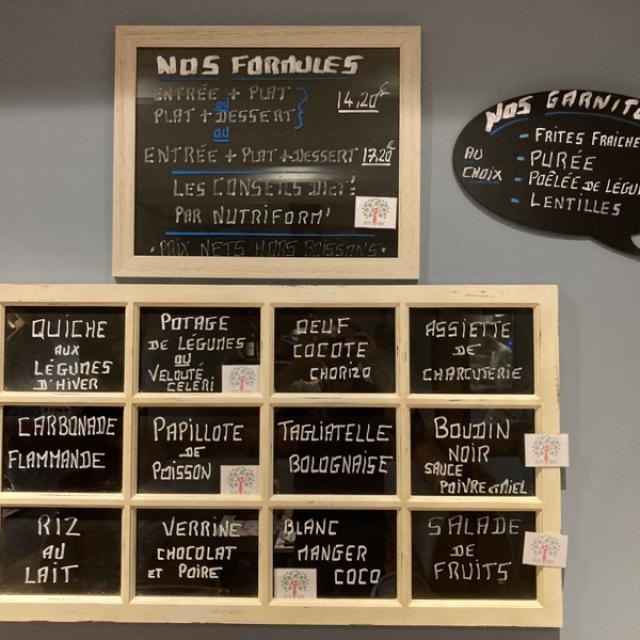 NOS FORMULES
ENTRÉE + PLAT
OU
PLAT + DESSERT
14,20€
OU
ENTRÉE + PLAT + DESSERT 17,20€
LES CONSEILS DIET'
PAR NUTRIFORM'
• PRIX NETS HORS BOISSONS •
NOS GARNITU
AU
CHOIX
- FRITES FRAICHE
- PURÉE
- POÊLÉE DE LÉGU
- LENTILLES
QUICHE
AUX
LÉGUMES
D'HIVER
POTAGE
DE LÉGUMES
OU
VELOUTÉ
CÉLERI
OEUF
COCOTE
CHORIZO
ASSIETTE
DE
CHARCUTERIE
CARBONADE
FLAMMANDE
PAPILLOTE
DE
POISSON
TAGLIATELLE
BOLOGNAISE
BOUDIN
NOIR
SAUCE
POIVRE & MIEL
RIZ
AU
LAIT
VERRINE
CHOCOLAT
ET POIRE
BLANC
MANGER
COCO
SALADE
DE
FRUITS